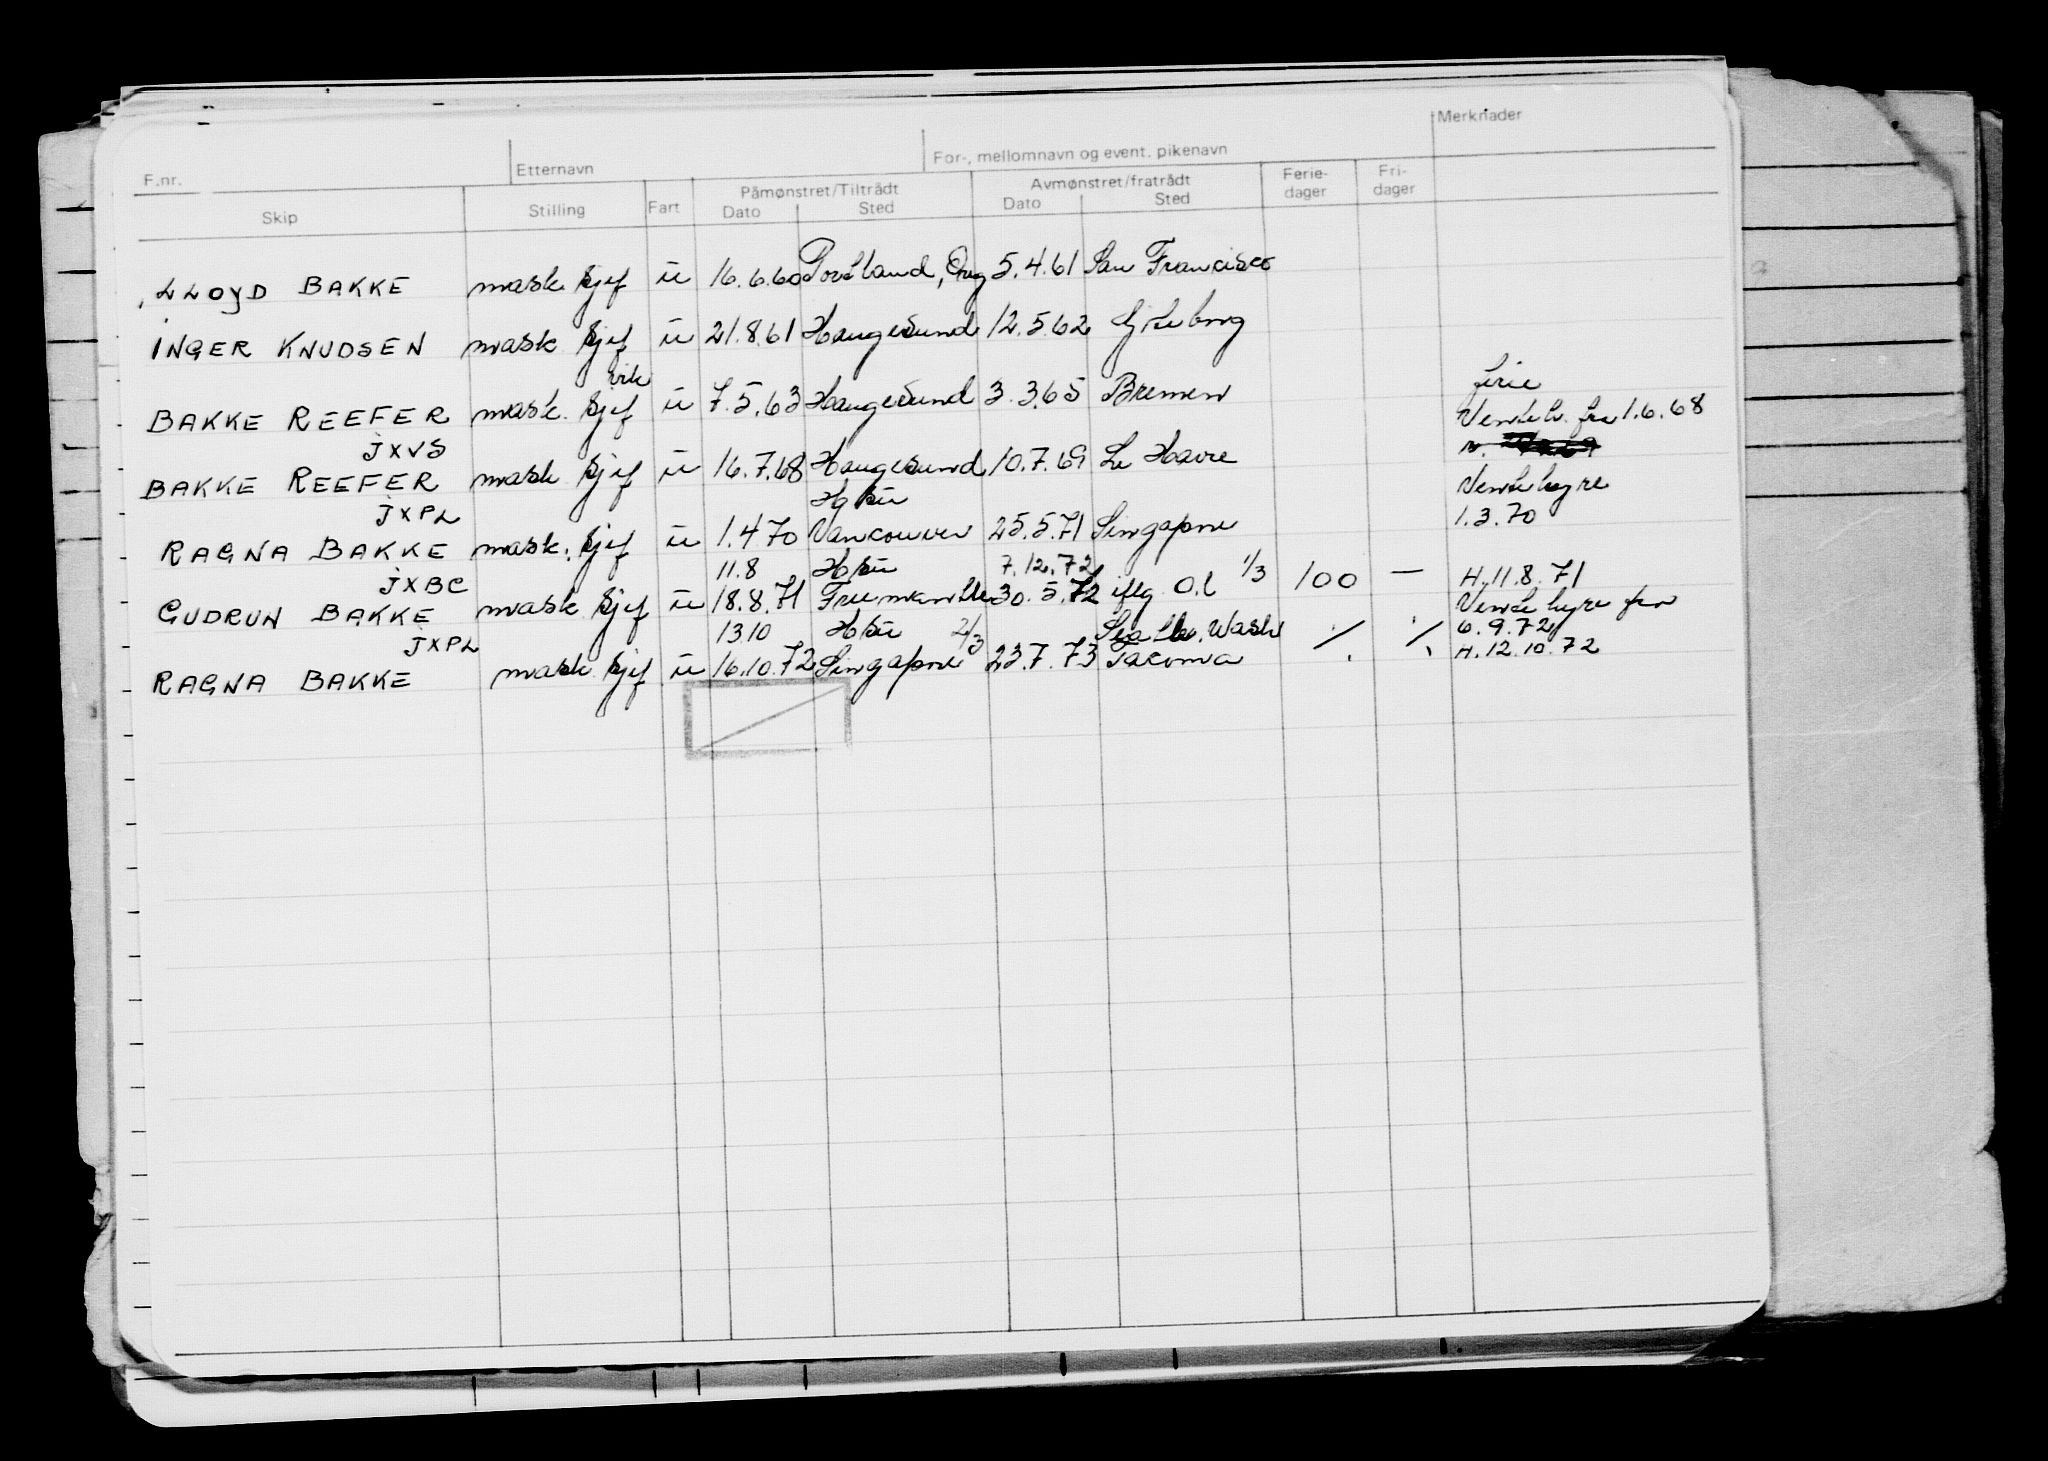 Merknader
F.nr. Etternavn For-, mellomnavn og event. pikenavn
Påmønstret/Tiltrådt Avmønstret/fratrådt Ferie-dager Fri-dager
Skip Stilling Fart Dato Sted Dato Sted
LLOYD BAKKE mask sjef u 16.6.60 Portland, Oreg 5.4.61 San Francisco
INGER KNUDSEN mask sjef u 21.8.61 Haugesund 12.5.62 Gøteborg
vik ferie
BAKKE REEFER mask. sjef u 7.5.63 Haugesund 3.3.65 Bremen Venteh. fra 1.6.68
JXVS
BAKKE REEFER mask sjef u 16.7.68 Haugesund 10.7.69 Le Havre Ventehyre
JXPL H 1.3.70
RAGNA BAKKE mask. sjef u 1.4.70 Vancouver 25.5.71 Singapore
JXBC 11.8 7.12.72 1/3 100 — H. 11.8.71
GUDRUN BAKKE mask sjef u 18.8.71 30.5.72 iflg O.l Ventehyre fra
JXPL 13.10 2/3 Seattle, Wash ./. ./. 6.9.72
RAGNA BAKKE mask sjef u 16.10.72 Singapore 23.7.73 Tacoma H. 12.10.72